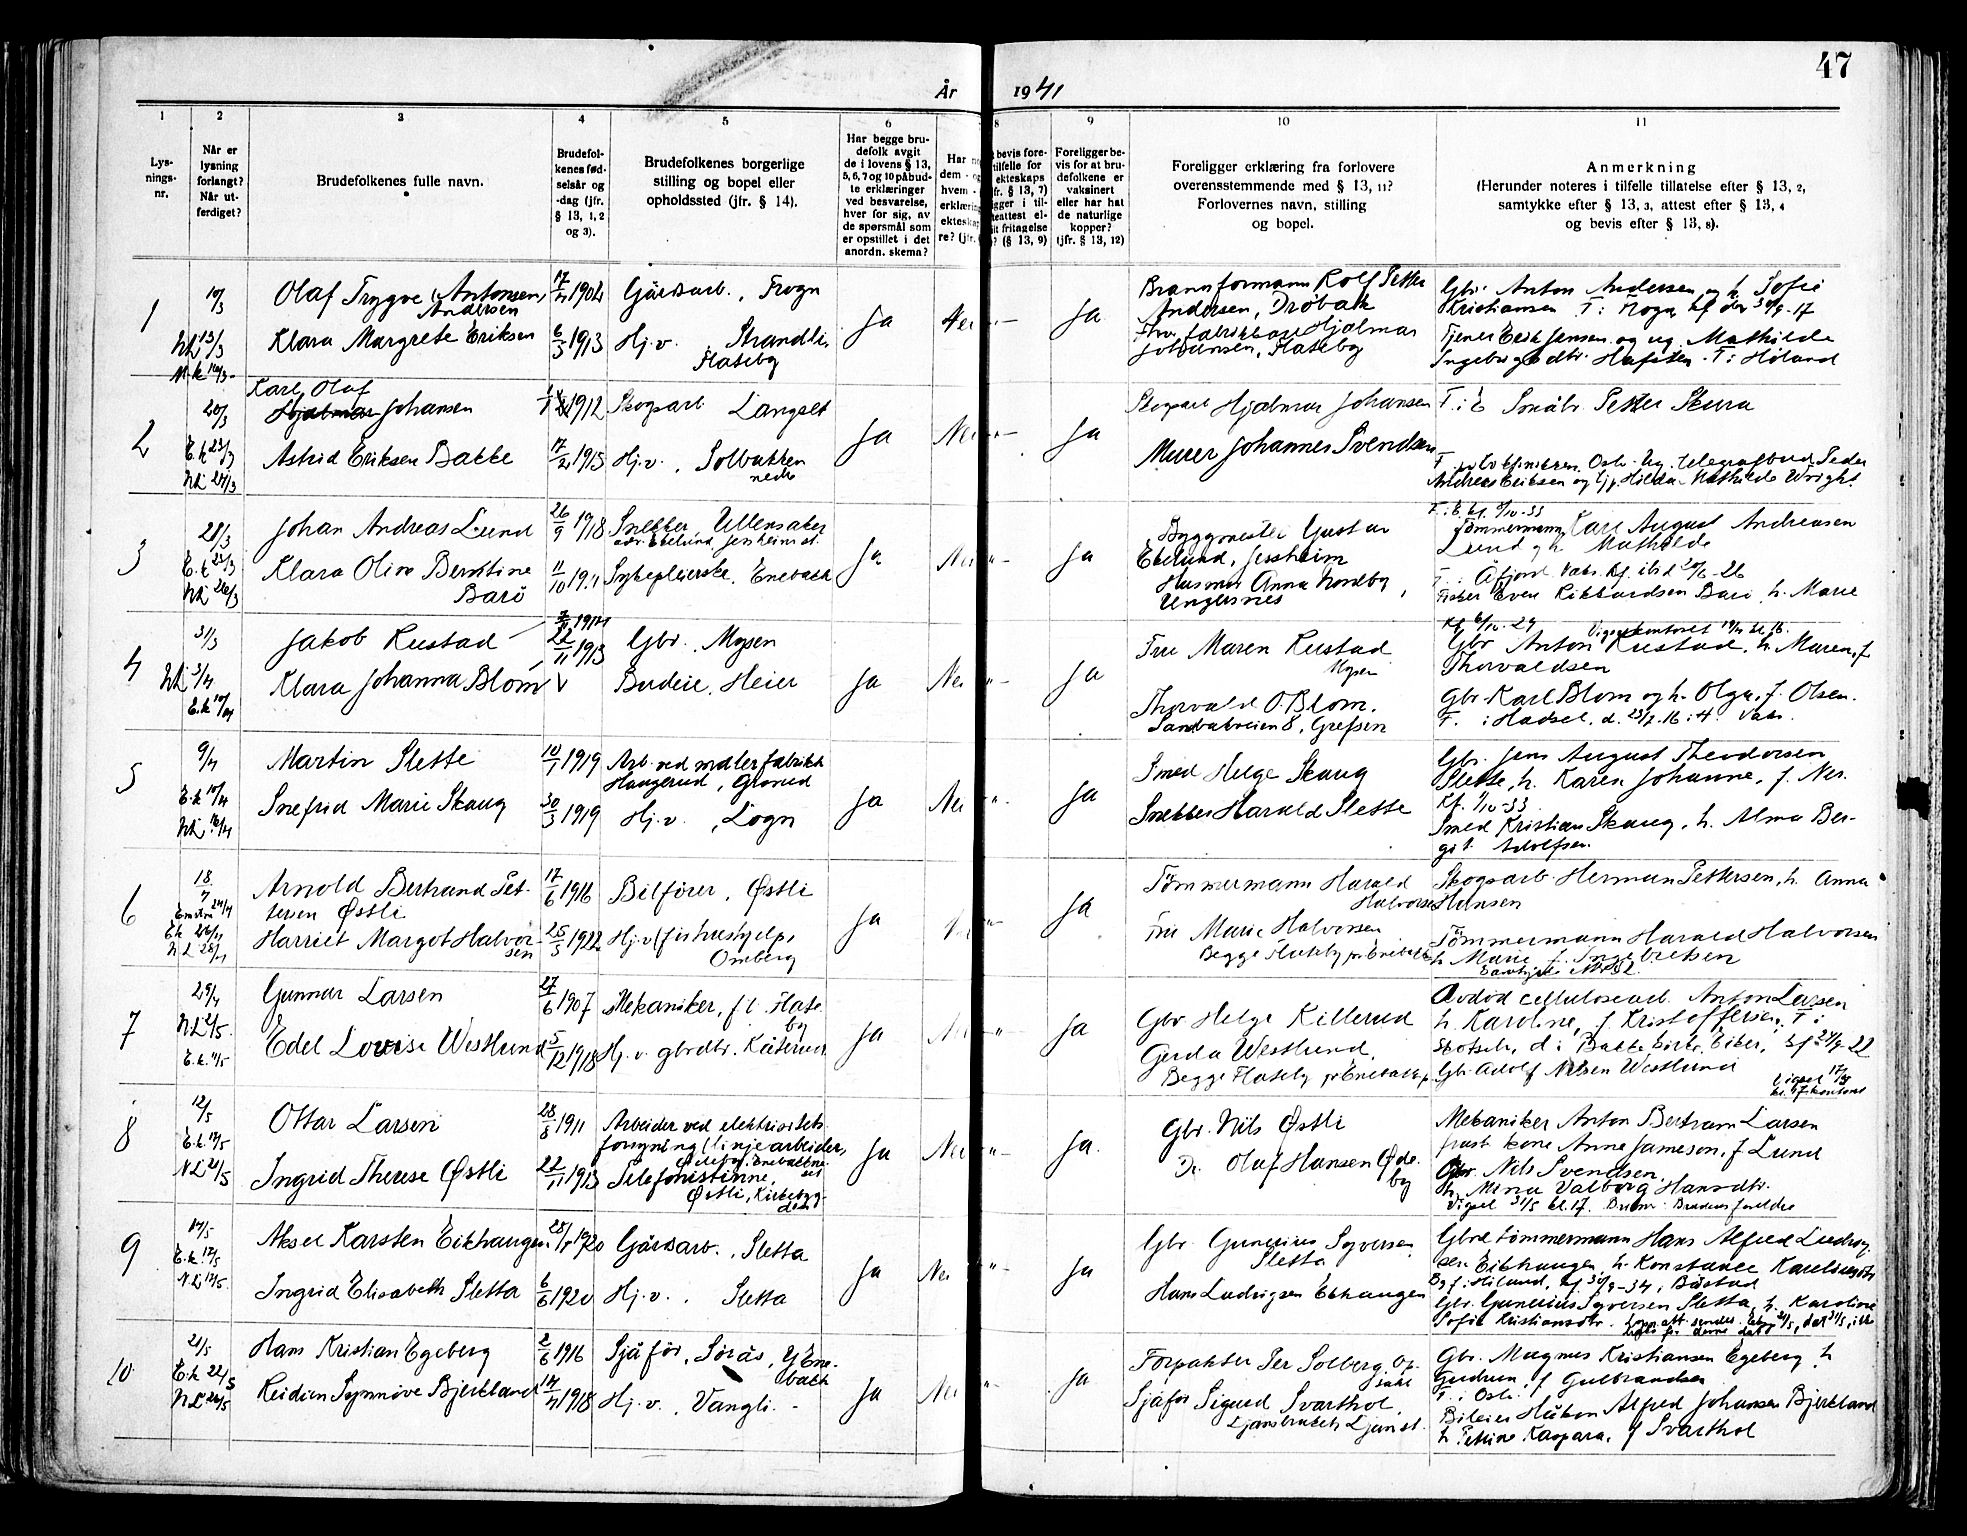 47
År 1941
1 2 3 4 5 6 8 9 10 11
Lys-
nings-
nr.
Når er
lysning
forlangt?
Når ut-
ferdiget?
Brudefolkenes fulle navn.
Brudefol-
kenes fød-
selsår og
-dag (jfr.
§ 13, 1, 2
og 3).
Brudefolkenes borgerlige
stilling og bopel eller
opholdssted (jfr. § 14).
Har begge bru-
defolk avgit
de i lovens § 13,
5, 6, 7 og 10 påbud-
te erklæringer
ved besvarelse,
hver for sig, av
de spørsmål som
er opstillet i det
anordn. skema?
Har
dem - og
hvem -
erklæring
ekteskap
re? (jfr.
bevis fore-
tilfelle for
ekteskaps
fr. § 13, 7)
gger i til-
eattest el-
it fritagelse
? (§ 13, 9)
Foreligger be-
vis for at bru-
defolkene er
vaksinert
eller har hat
de naturlige
kopper?
(jfr. § 13, 12)
Foreligger erklæring fra forlovere
overensstemmende med § 13, 11?
Forlovernes navn, stilling
og bopel.
Anmerkning
(Herunder noteres i tilfelle tillatelse efter § 13, 2,
samtykke efter § 13, 3, attest efter § 13, 4
og bevis efter § 13, 8).
1
10/3
N.L. 13/3
Olaf Trygve (Antonsen)
Andersen
Klara Margrete Eriksen
1904
6/3 1913
Gårdsarb., Frogn
Hj.v. Strandli,
Flateby
Ja
Nei
Ja
Brannformann Rolf Petter
Andersen, Drøbak
Hjalmar
Johansen, Flateby
Gbr. Anton Andersen og h. Sofie
Kristiansen F. i Frogn kf den 30/9-17
Tjener Erik Jensen og ug. Mathilde
Ingeborg dtr. Hafsten. F. i Høland
2
20/3
E.k 23/3
N.L. 24/3
Karl Olaf
Hjalmar Johansen
Astrid Eriksen Bakke
1912
17/2 1915
Skogsarb Langset
Hj.v., Solbakken
nedre
Ja
Nei
Ja
Skogsarb Hjalmar Johansen
Murer Johannes Svendsen
F. i E Småbr. Petter Skura
Oslo. Ug. telegrafbud Peder
Andreas Eriksen og Hilda Mathilde Wright
3
21/3
E.k 23/3
N.L. 26/3
Johan Andreas Lund
Klara Oline Berntine
Barø
26/9 1918
11/10 19
Snekker, Ullensaker
adr. Ekelund, Jessheim st.
Sykepleierske, Enebakk
Ja
Nei
Ja
Byggmester Gustav
Ekelund, Jessheim
Husmor Anna Nordby,
F. i E. kf. 8/10-33
Tømmermann Karl August Andreasen
Lund og h. Mathilde
F. i Åfjord Vaks. Kf.
Fisker Even Rikkardsen Barø, h. Marie
4
31/3
N.L. 3/4
E.k 10/4
Jakob Rustad
Klara Johanna Blom
22/11 1913
Gbr. Mysen
Budeie, Heier
Ja
Nei
Ja
Fru Maren Rustad
Mysen
Thorvald O. Blom.
Sandakveien 8, Grefsen
Gbr Anton Rustad, h. Maren, f.
Thorvaldsen
Gbr. Karl Blom og h. Olga, f. Olsen.
F. i Hadsel, d. 23/7.16 i H. Vaks.
5
9/4
E.k 10/4
N.L. 16/4
Martin Slette
Snefrid Marie Skaug
10/1 1919
30/3 1919
Arb. ved målerfabrikk
Haugerud, Grorud
Hj.v., Logn
Ja
Nei
Ja
Smed Helge Skaug
Snekker Harald Slette
Gbr. Jens August Theodorsen
Slette, h. Karen Johanne, f. Nes.
Kf. 1/10-33
Smed Kristian Skaug, h. Alma Ber-
git Adolfsen.
6
18/4
E.k 26/4
N.L 28/4
Arnold Bertrand Pet-
tersen Østli
Harriet Margot Halvor-
sen
17/6 1916
25/5 1922
Bilfører, Østli
Hj.v (f. hushjelp)
Omberg
Ja
Ja
Tømmermann Harald
Halvorsen
Fru Marie Halvorsen
Begge Flateby pr Enebakk
Skogsarb Herman Pettersen, h. Anna
Hansen
Tømmermann Harald Halvorsen
h. Marie f. Ingebretsen
7
29/4
N.L 2/5.
E.k. 4/5
Gunnar Larsen
Edel Lovise Westlund
27/6 1907
5/12 1918
Mekaniker, f.t. Flate-
by
Hj.v. gbrdtr. Kåterud
Ja
Ja
Gbr Helge Killerud
Gerda Westlund,
Begge Flateby pr Enebakk
Avdød cellulosearb. Anton Larsen
h. Karoline, f Kristoffersen. F. i
Skotselv, d i Bakke
Gbr. Adolf Nilsen Westlund
8
12/5
E.k. 18/5
N.L 21/5
Ottar Larsen
Ingrid Therese Østli
28/8 1911
22/11 1913
Arbeider ved elektrisitets-
forsyning (linjearbeider)
Telefonistinne,
Østli, Kirkebyg-
den
Ja
Nei
Ja.
Gbr. Nils Østli
Do. Olaf Hansen Øde-
by
Mekaniker Anton Bertram Larsen
h. Anne Jameson, f Lund
Gbr. Nils Svendsen
h. Mina Valborg Hansdtr.
Vigsel 31/5 kl. 17.
9
14/5
E.k. 17/5
N.L. 17/5.
Aksel Karsten Eikhaugen
Ingrid Elisabeth Sletta
28/1 1920
6/6 1920
Gårdsarb., Sletta
Hj.v. Sletta
Ja
Nei
Ja
Gbr. Gunerius Syversen
Sletta
Hans Ludvigsen Ekhaugen
Gbr og tømmermann Hans Alfred Ludvig-
sen Eikhaugen, h. Konstance
Gbr. Gunerius Syversen Sletta, h. Karoline
Sofie Kristiansdtr.
10
21/5
E.k 22/5
N.L. 26/5
Hans Kristian Egeberg
Reidun Synnøve Bjerkland
2/6 1916
1918
Sjåfør, Sørås, Y Ene-
bakk
Hj.v., Vangli.
Ja
Nei
Ja
Forpakter Per Solberg, Op-
sahl
Sjåfør Sigurd Svarthol,
Ljansbruket, Ljan st.
Gbr. Magnus Kristiansen Egeberg, h.
Gudrun, f Gulbrandsen
F. i Oslo
Bileier Håkon Alfred Johansen Bjerkland
h. Petrine Kaspara, f Svarthol